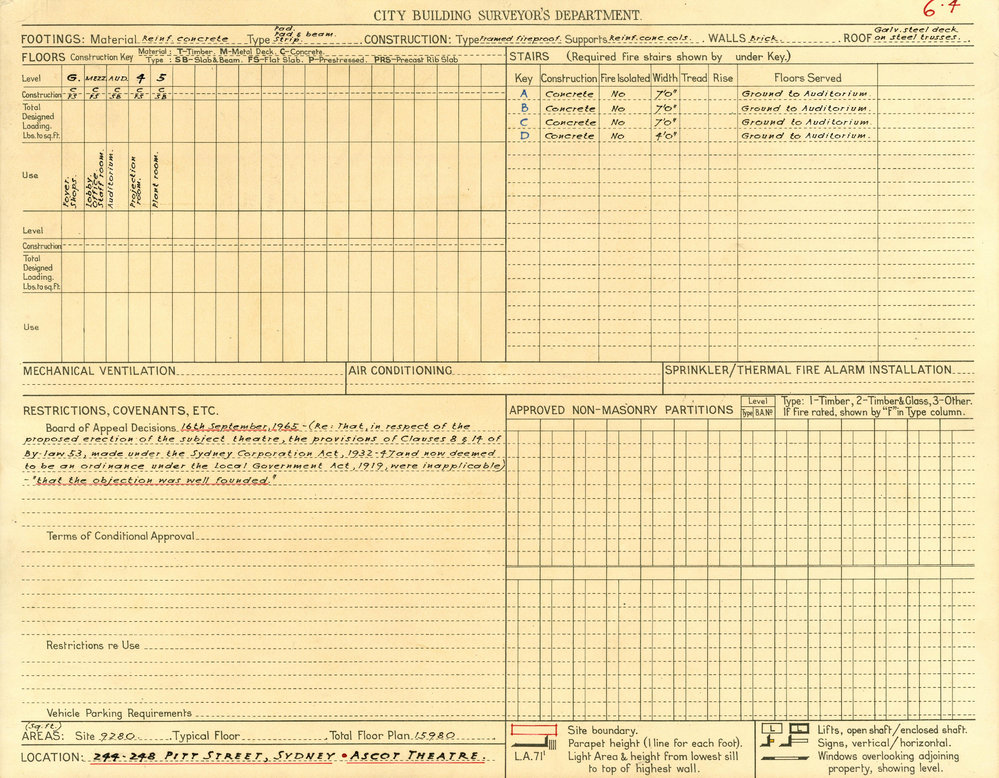 CITY BUILDING SURVEYOR'S DEPARTMENT.
6·4
FOOTINGS: Material Reinf. concrete Type Pad. Pad & beam. Strip. CONSTRUCTION: Type Framed fireproof. Supports Reinf. conc. cols. WALLS Brick. ROOF Galv. steel deck on steel trusses.
FLOORS Construction Key Material: T-Timber. M-Metal Deck. C-Concrete.
Type: SB-Slab & Beam. FS-Flat Slab. P-Prestressed. PRS-Precast Rib Slab
Level G. MEZZ. AUD. 4 5
Construction C FS C FS C SB C FS C SB
Total
Designed
Loading.
Lbs. to sq. ft.
Use
Foyer. Shops.
Lobby. Office. Staff room.
Auditorium.
Projection room.
Plant room.
Level
Construction
Total
Designed
Loading.
Lbs. to sq. ft.
Use
STAIRS (Required fire stairs shown by under Key.)
Key Construction Fire Isolated Width Tread Rise Floors Served
A Concrete No 7'0" Ground to Auditorium.
B Concrete No 7'0" Ground to Auditorium.
C Concrete No 7'0" Ground to Auditorium.
D Concrete No 4'0" Ground to Auditorium.
MECHANICAL VENTILATION
AIR CONDITIONING
SPRINKLER/THERMAL FIRE ALARM INSTALLATION
RESTRICTIONS, COVENANTS, ETC.
Board of Appeal Decisions 16th September, 1965 - (Re: That, in respect of the
proposed erection of the subject theatre, the provisions of Clauses 8 & 14 of
By-law 53, made under the Sydney Corporation Act, 1932-47 and now deemed
to be an ordinance under the Local Government Act, 1919, were inapplicable)
- "that the objection was well founded."
Terms of Conditional Approval
Restrictions re Use
Vehicle Parking Requirements
APPROVED NON-MASONRY PARTITIONS
Level
Type B.A. Nº
Type: 1-Timber, 2-Timber & Glass, 3-Other.
If Fire rated, shown by "F" in Type column.
(Sq. ft.)
AREAS: Site 9280 Typical Floor Total Floor Plan 15980
LOCATION: 244-248 PITT STREET, SYDNEY • ASCOT THEATRE.
Site boundary.
Parapet height (1 line for each foot).
L.A. 71' Light Area & height from lowest sill
to top of highest wall.
L Lifts, open shaft/enclosed shaft.
Signs, vertical/horizontal.
Windows overlooking adjoining
property, showing level.